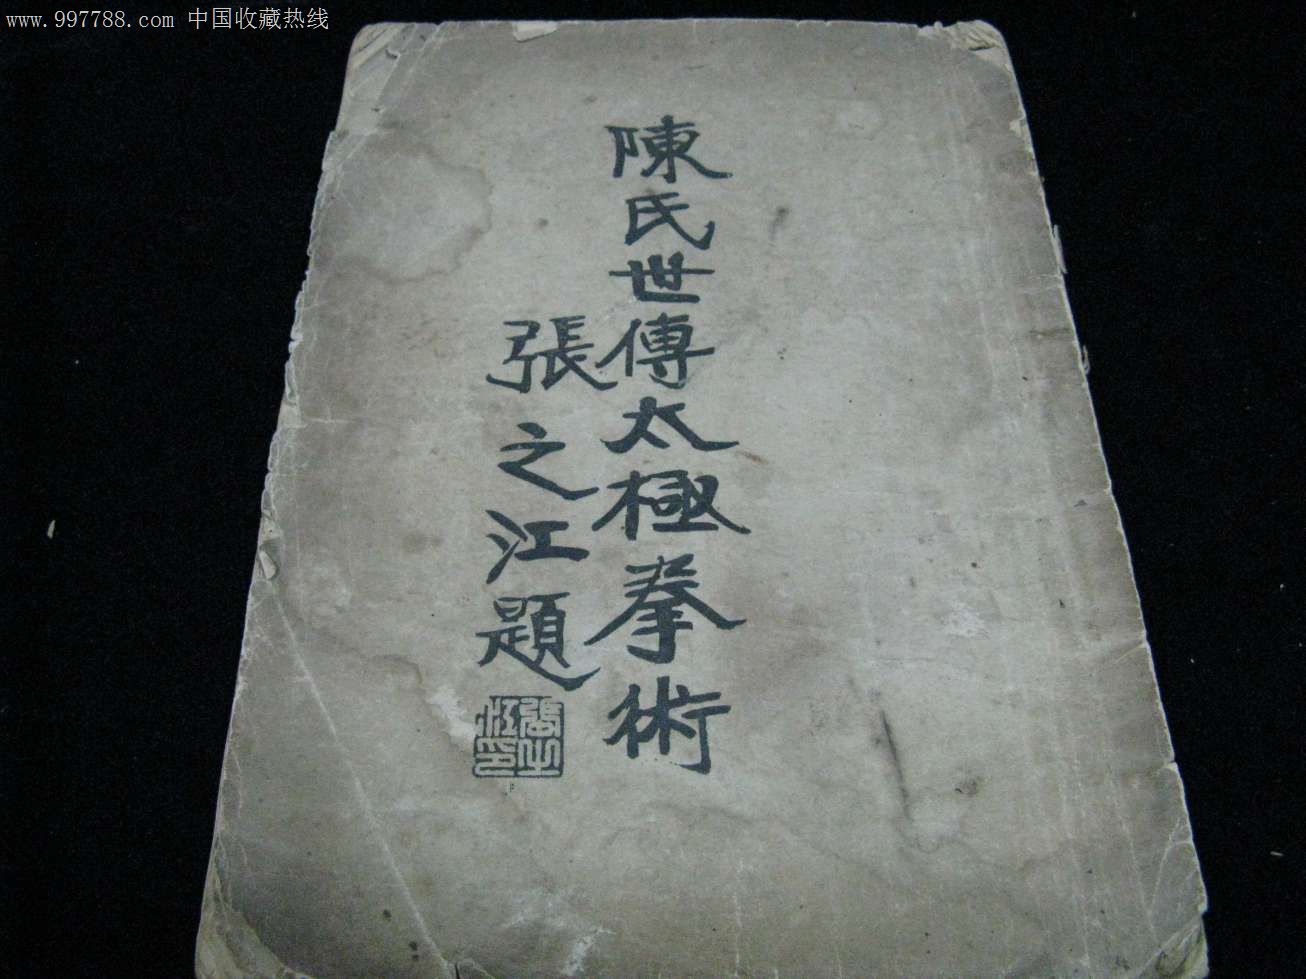 www.997788.com 中国收藏热线
陳氏世傳太極拳術
張之江題
張之江印